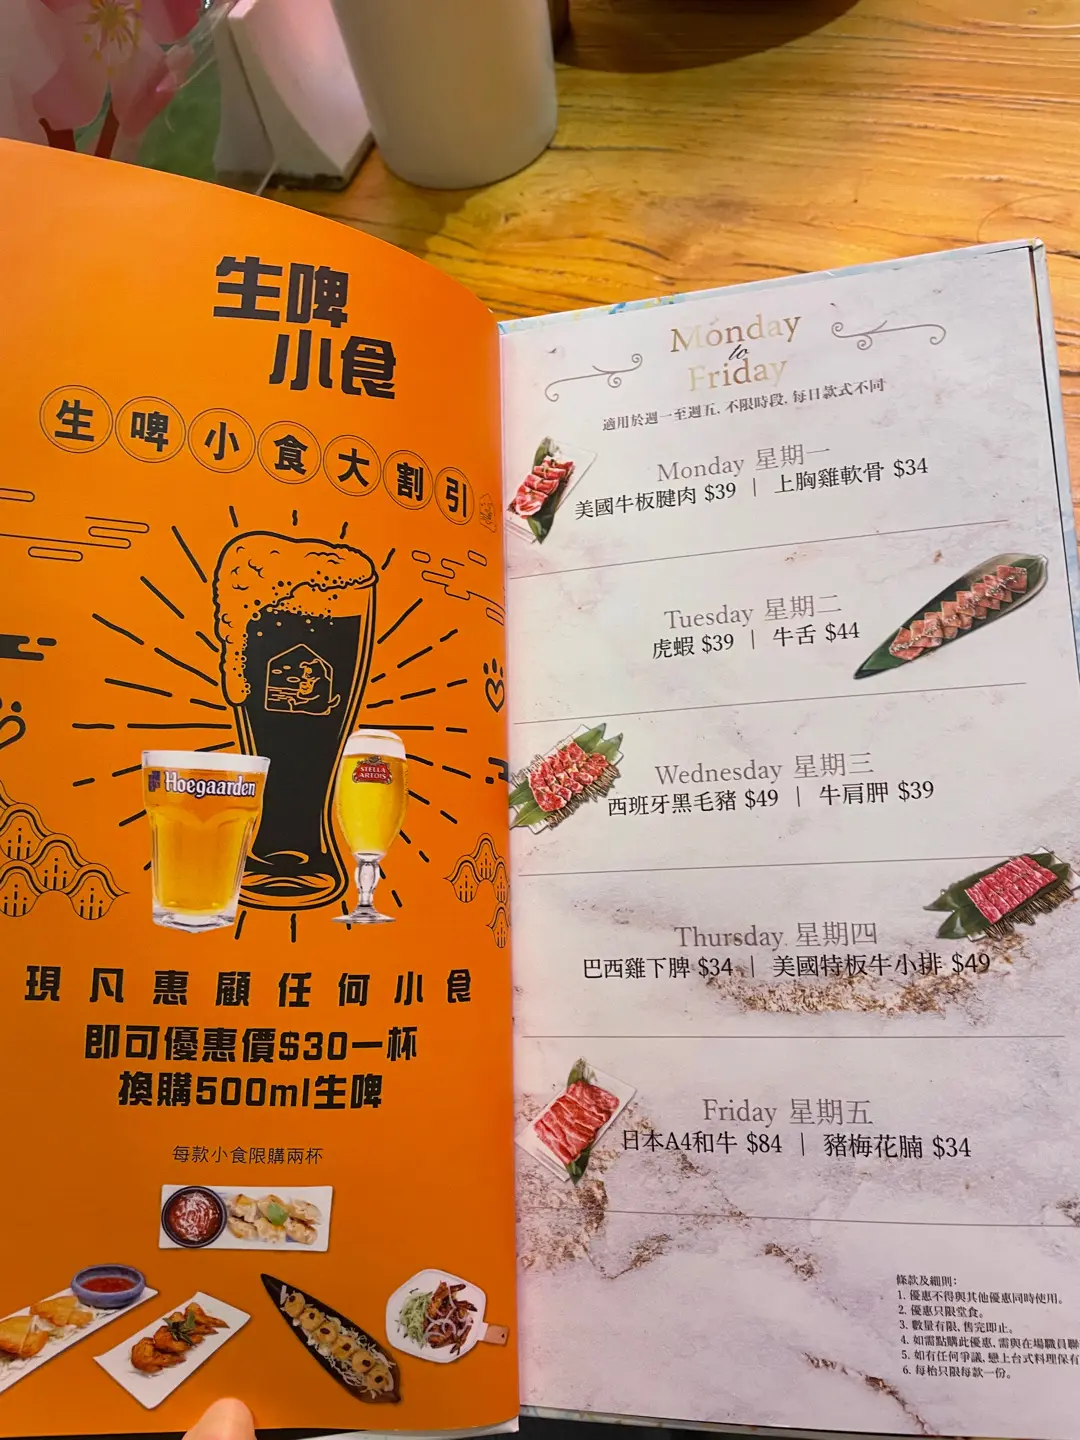 生啤
小食
生啤小食大割引
Hoegaarden
STELLA
ARTOIS
現凡惠顧任何小食
即可優惠價$30一杯
換購500ml生啤
每款小食限購兩杯
Monday
to
Friday
適用於週一至週五, 不限時段, 每日款式不同
Monday 星期一
美國牛板腱肉 $39 | 上胸雞軟骨 $34
Tuesday 星期二
虎蝦 $39 | 牛舌 $44
Wednesday 星期三
西班牙黑毛豬 $49 | 牛肩胛 $39
Thursday 星期四
巴西雞下脾 $34 | 美國特板牛小排 $49
Friday 星期五
日本A4和牛 $84 | 豬梅花腩 $34
條款及細則:
1. 優惠不得與其他優惠同時使用。
2. 優惠只限堂食。
3. 數量有限, 售完即止。
4. 如需點購此優惠, 需與在場職員聯
5. 如有任何爭議, 戀上台式料理保有
6. 每枱只限每款一份。